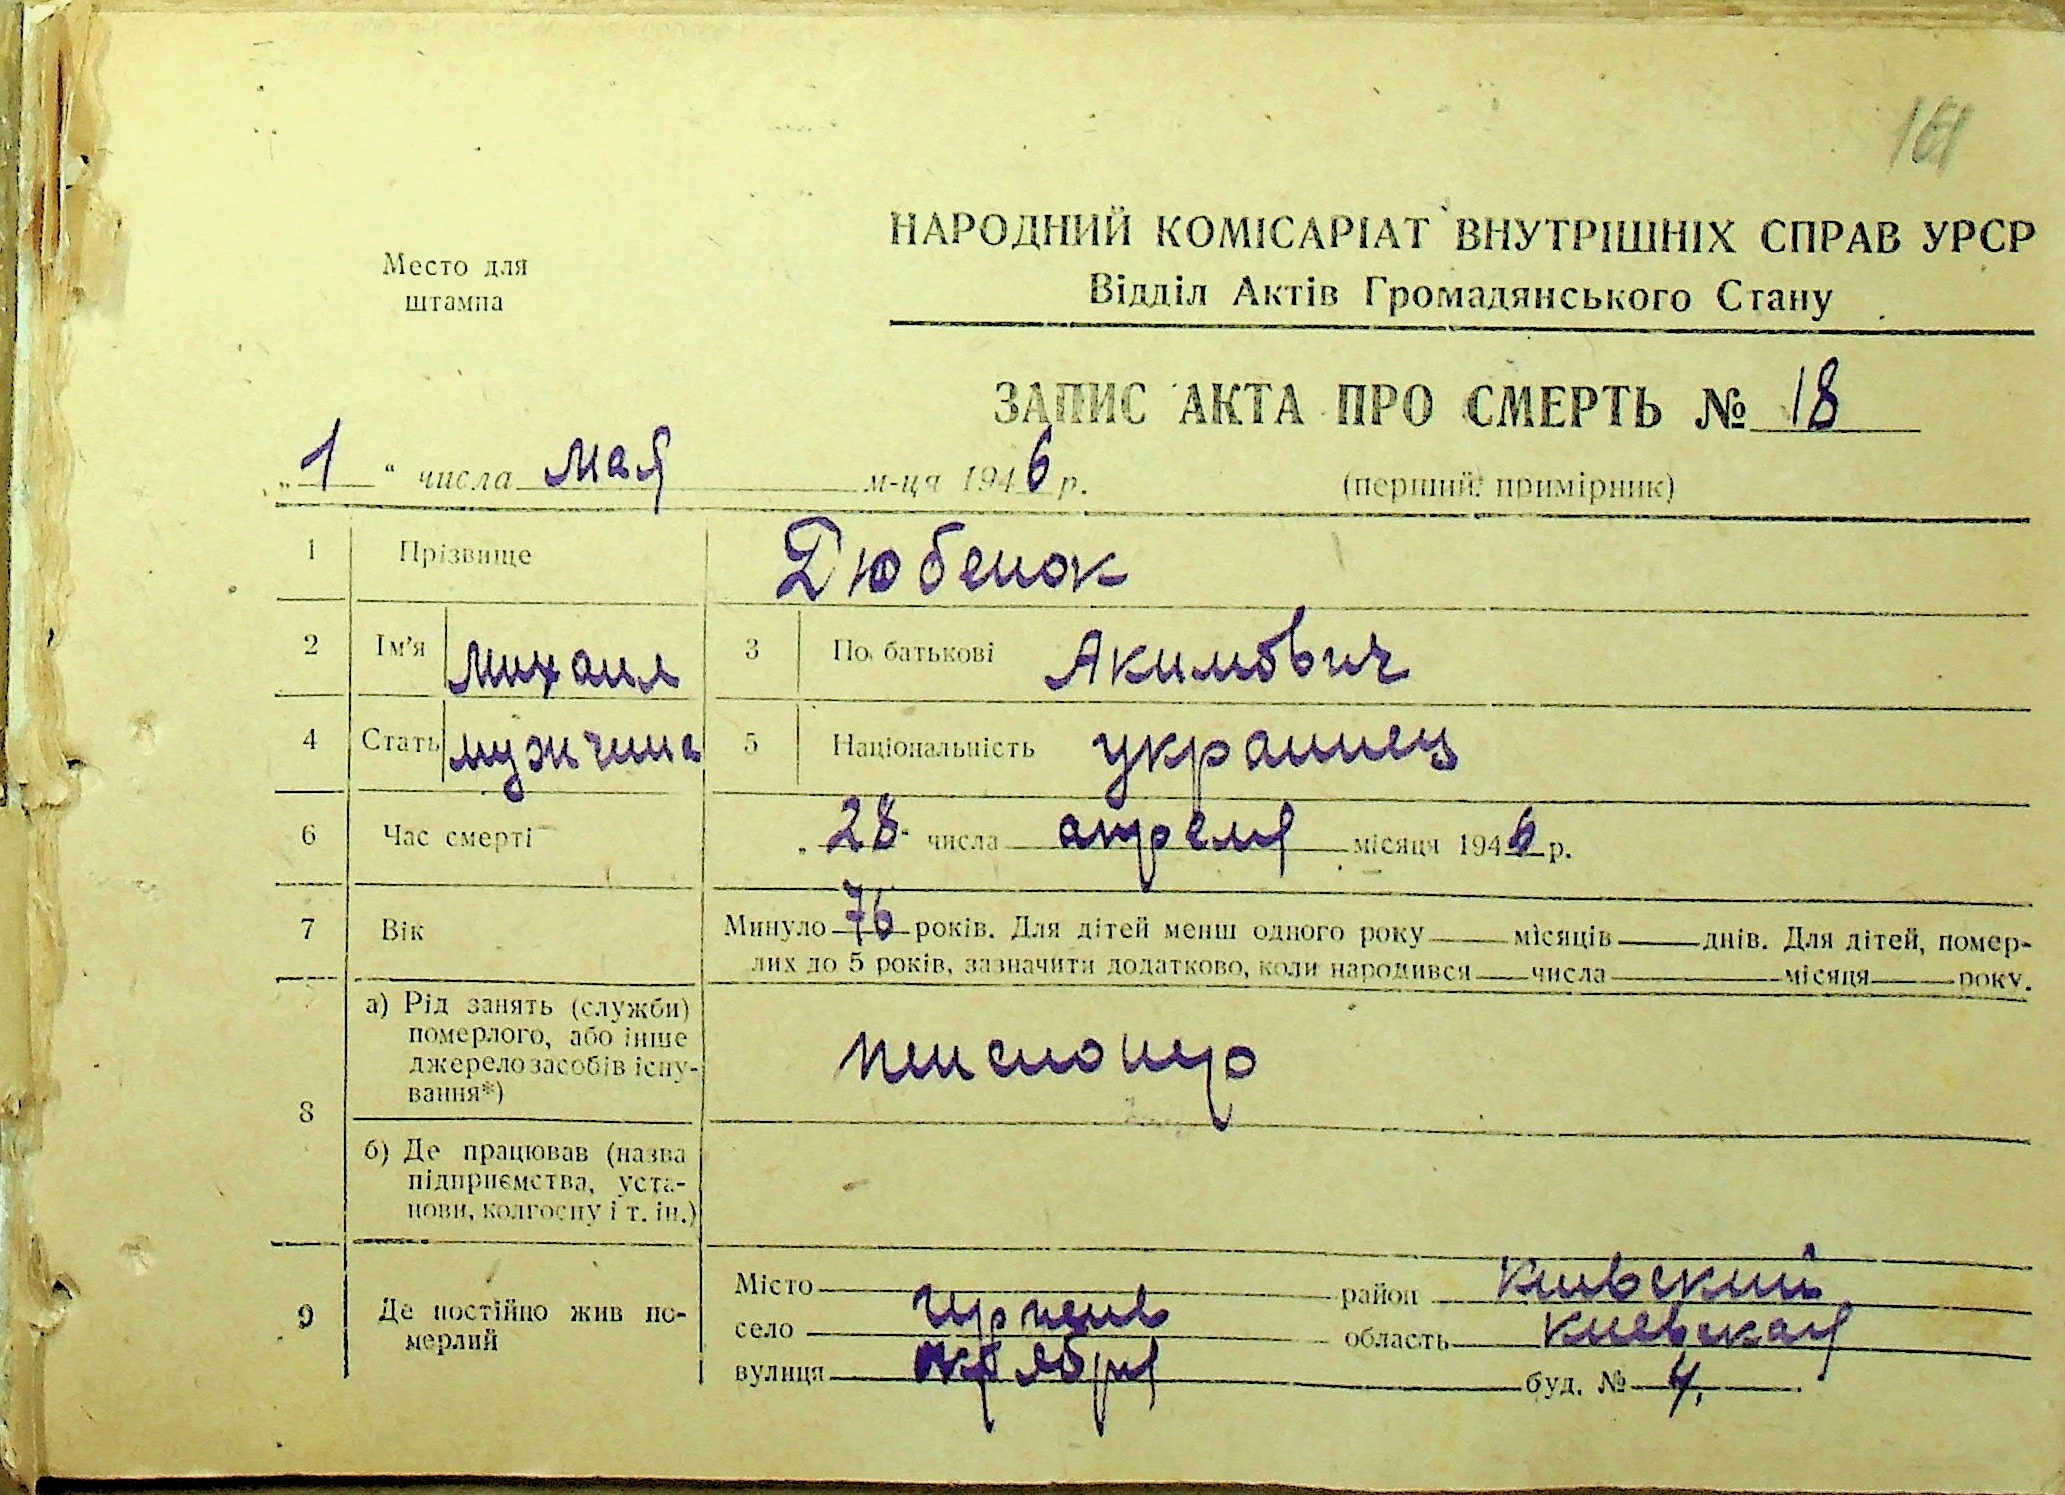 161
Место для
штампа
НАРОДНИЙ КОМІСАРІАТ ВНУТРІШНІХ СПРАВ УРСР
Відділ Актів Громадянського Стану
ЗАПИС АКТА ПРО СМЕРТЬ № 18
„1“ числа мая м-ця 1946 р. (перший примірник)
1 Прізвище Дюбенок
2 Ім’я Михаил 3 По батькові Акимович
4 Стать мужчина 5 Національність украинец
6 Час смерті „28“ числа апреля місяця 1946 р.
7 Вік Минуло 76 років. Для дітей менш одного року ___ місяців ___ днів. Для дітей, помер-
лих до 5 років, зазначити додатково, коли народився ___ числа ___ місяця ___ року.
8 а) Рід занять (служби)
померлого, або інше
джерело засобів існу-
вання*) пенсионер
б) Де працював (назва
підприємства, уста-
нови, колгоспу і т. ін.)
9 Де постійно жив по-
мерлий
Місто Ирпень район Киевский
село область Киевская
вулиця Октября буд. № 4.